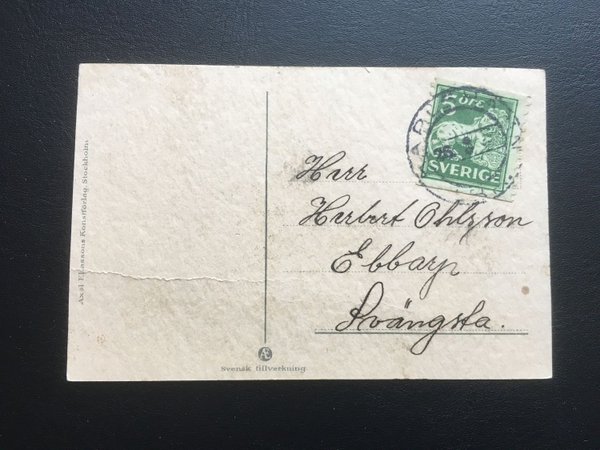 5 ÖRE
SVERIGE
Herr
Herbert Ohlsson
Ebbarp
Svängsta.
Axel Eliassons Konstförlag, Stockholm
Æ
Svensk tillverkning